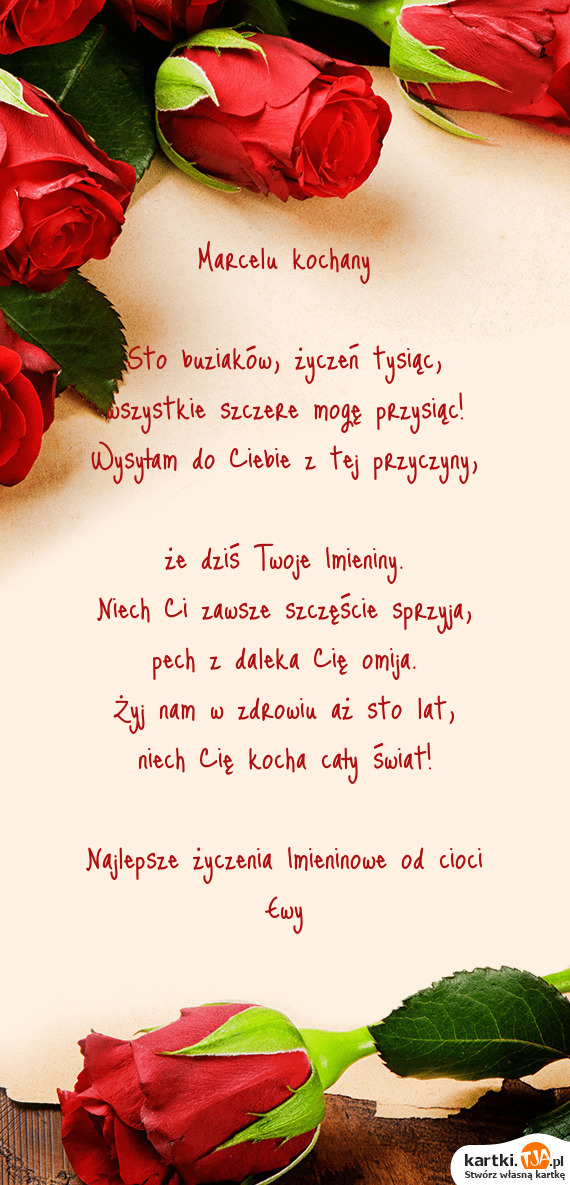 Marcelu kochany
Sto buziaków, życzeń tysiąc,
wszystkie szczere mogę przysiąc!
Wysyłam do Ciebie z tej przyczyny,
że dziś Twoje Imieniny.
Niech Ci zawsze szczęście sprzyja,
pech z daleka Cię omija.
Żyj nam w zdrowiu aż sto lat,
niech Cię kocha cały świat!
Najlepsze życzenia Imieninowe od cioci
Ewy
kartki.TJA.pl
Stwórz własną kartkę